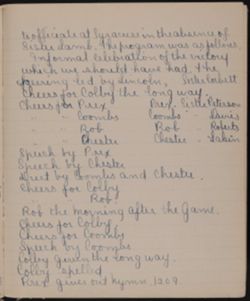 to officiate at Syracuse in the absence of
Sister Lamb. The program was as follows
Informal celebration of the victory
which we should have had. The
cheering led by Lincoln, Sister Corbett
Cheers for Colby the long way.
Cheers for Prex Prex - Sister Peterson
" " Coombs Coombs - " Davis
" " Rob Rob - " Roberts
" " Chester Chester - " Eakin
Speech by Prex
Speech by Chester
Duet by Coombs and Chester.
Cheers for Colby
" " Rob.
Rob the morning after the Game.
Cheers for Colby.
Cheers for Coombs
Speech by Coombs.
Colby given the long way.
Colby spelled
Prex gives out hymn 1209.